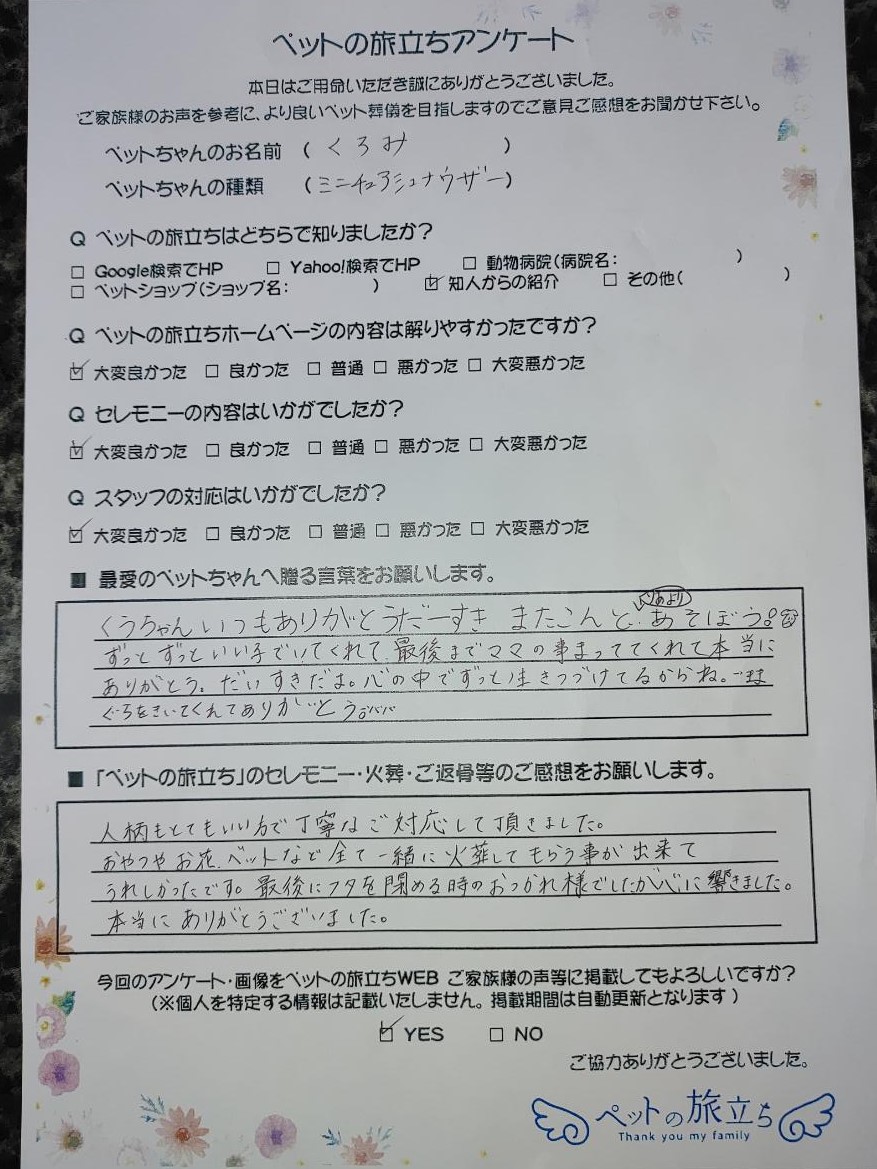 ペットの旅立ちアンケート
本日はご用命いただき誠にありがとうございました。
ご家族様のお声を参考に、より良いペット葬儀を目指しますのでご意見ご感想をお聞かせ下さい。
ペットちゃんのお名前 ( くろみ )
ペットちゃんの種類 (ミニチュアシュナウザー)
Q ペットの旅立ちはどちらで知りましたか?
□ Google検索でHP □ Yahoo!検索でHP □ 動物病院(病院名: )
□ ペットショップ(ショップ名: ) ☑ 知人からの紹介 □ その他( )
Q ペットの旅立ちホームページの内容は解りやすかったですか?
☑ 大変良かった □ 良かった □ 普通 □ 悪かった □ 大変悪かった
Q セレモニーの内容はいかがでしたか?
☑ 大変良かった □ 良かった □ 普通 □ 悪かった □ 大変悪かった
Q スタッフの対応はいかがでしたか?
☑ 大変良かった □ 良かった □ 普通 □ 悪かった □ 大変悪かった
■ 最愛のペットちゃんへ贈る言葉をお願いします。
くうちゃんいつもありがとうだーすき またこんど あそぼう。
ずっとずっといい子でいてくれて、最後までママの事まっててくれて本当に
ありがとう。だいすきだよ。心の中でずっと生きつづけてるからね。
をきいてくれてありがとう。
■ 「ペットの旅立ち」のセレモニー・火葬・ご返骨等のご感想をお願いします。
人柄もとてもいい方で丁寧なご対応して頂きました。
おやつやお花、ベットなど全て一緒に火葬してもらう事が出来て
うれしかったです。最後にフタを閉める時のおつかれ様でしたが心に響きました。
本当にありがとうございました。
今回のアンケート・画像をペットの旅立ちWEB ご家族様の声等に掲載してもよろしいですか?
(※個人を特定する情報は記載いたしません。掲載期間は自動更新となります)
☑ YES □ NO
ご協力ありがとうございました。
ペットの旅立ち
Thank you my family